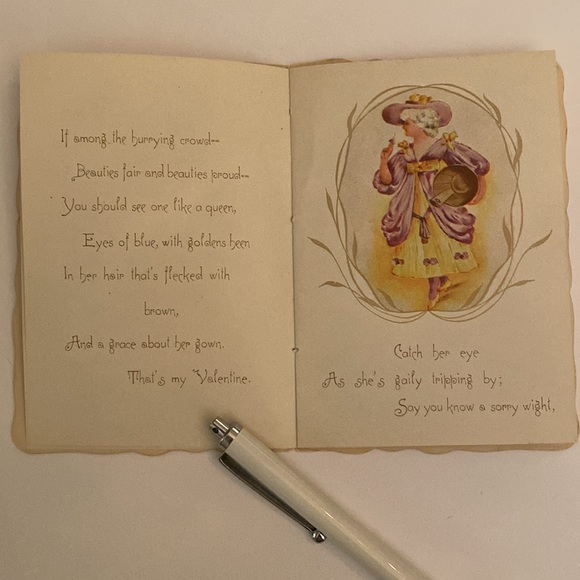 If among the hurrying crowd—
Beauties fair and beauties proud—
You should see one like a queen,
Eyes of blue, with goldens heen
In her hair that's flecked with
brown,
And a grace about her gown.
That's my Valentine.
Catch her eye
As she's gaily tripping by;
Say you know a sorry wight,